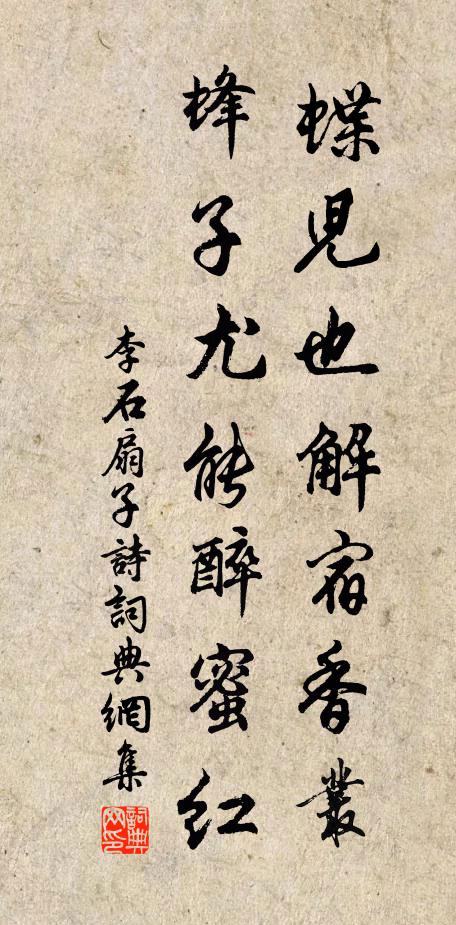 蝶児也解宿香叢
蜂子尤能醉蜜紅
李石扇子詩詞典網集
詞典網印